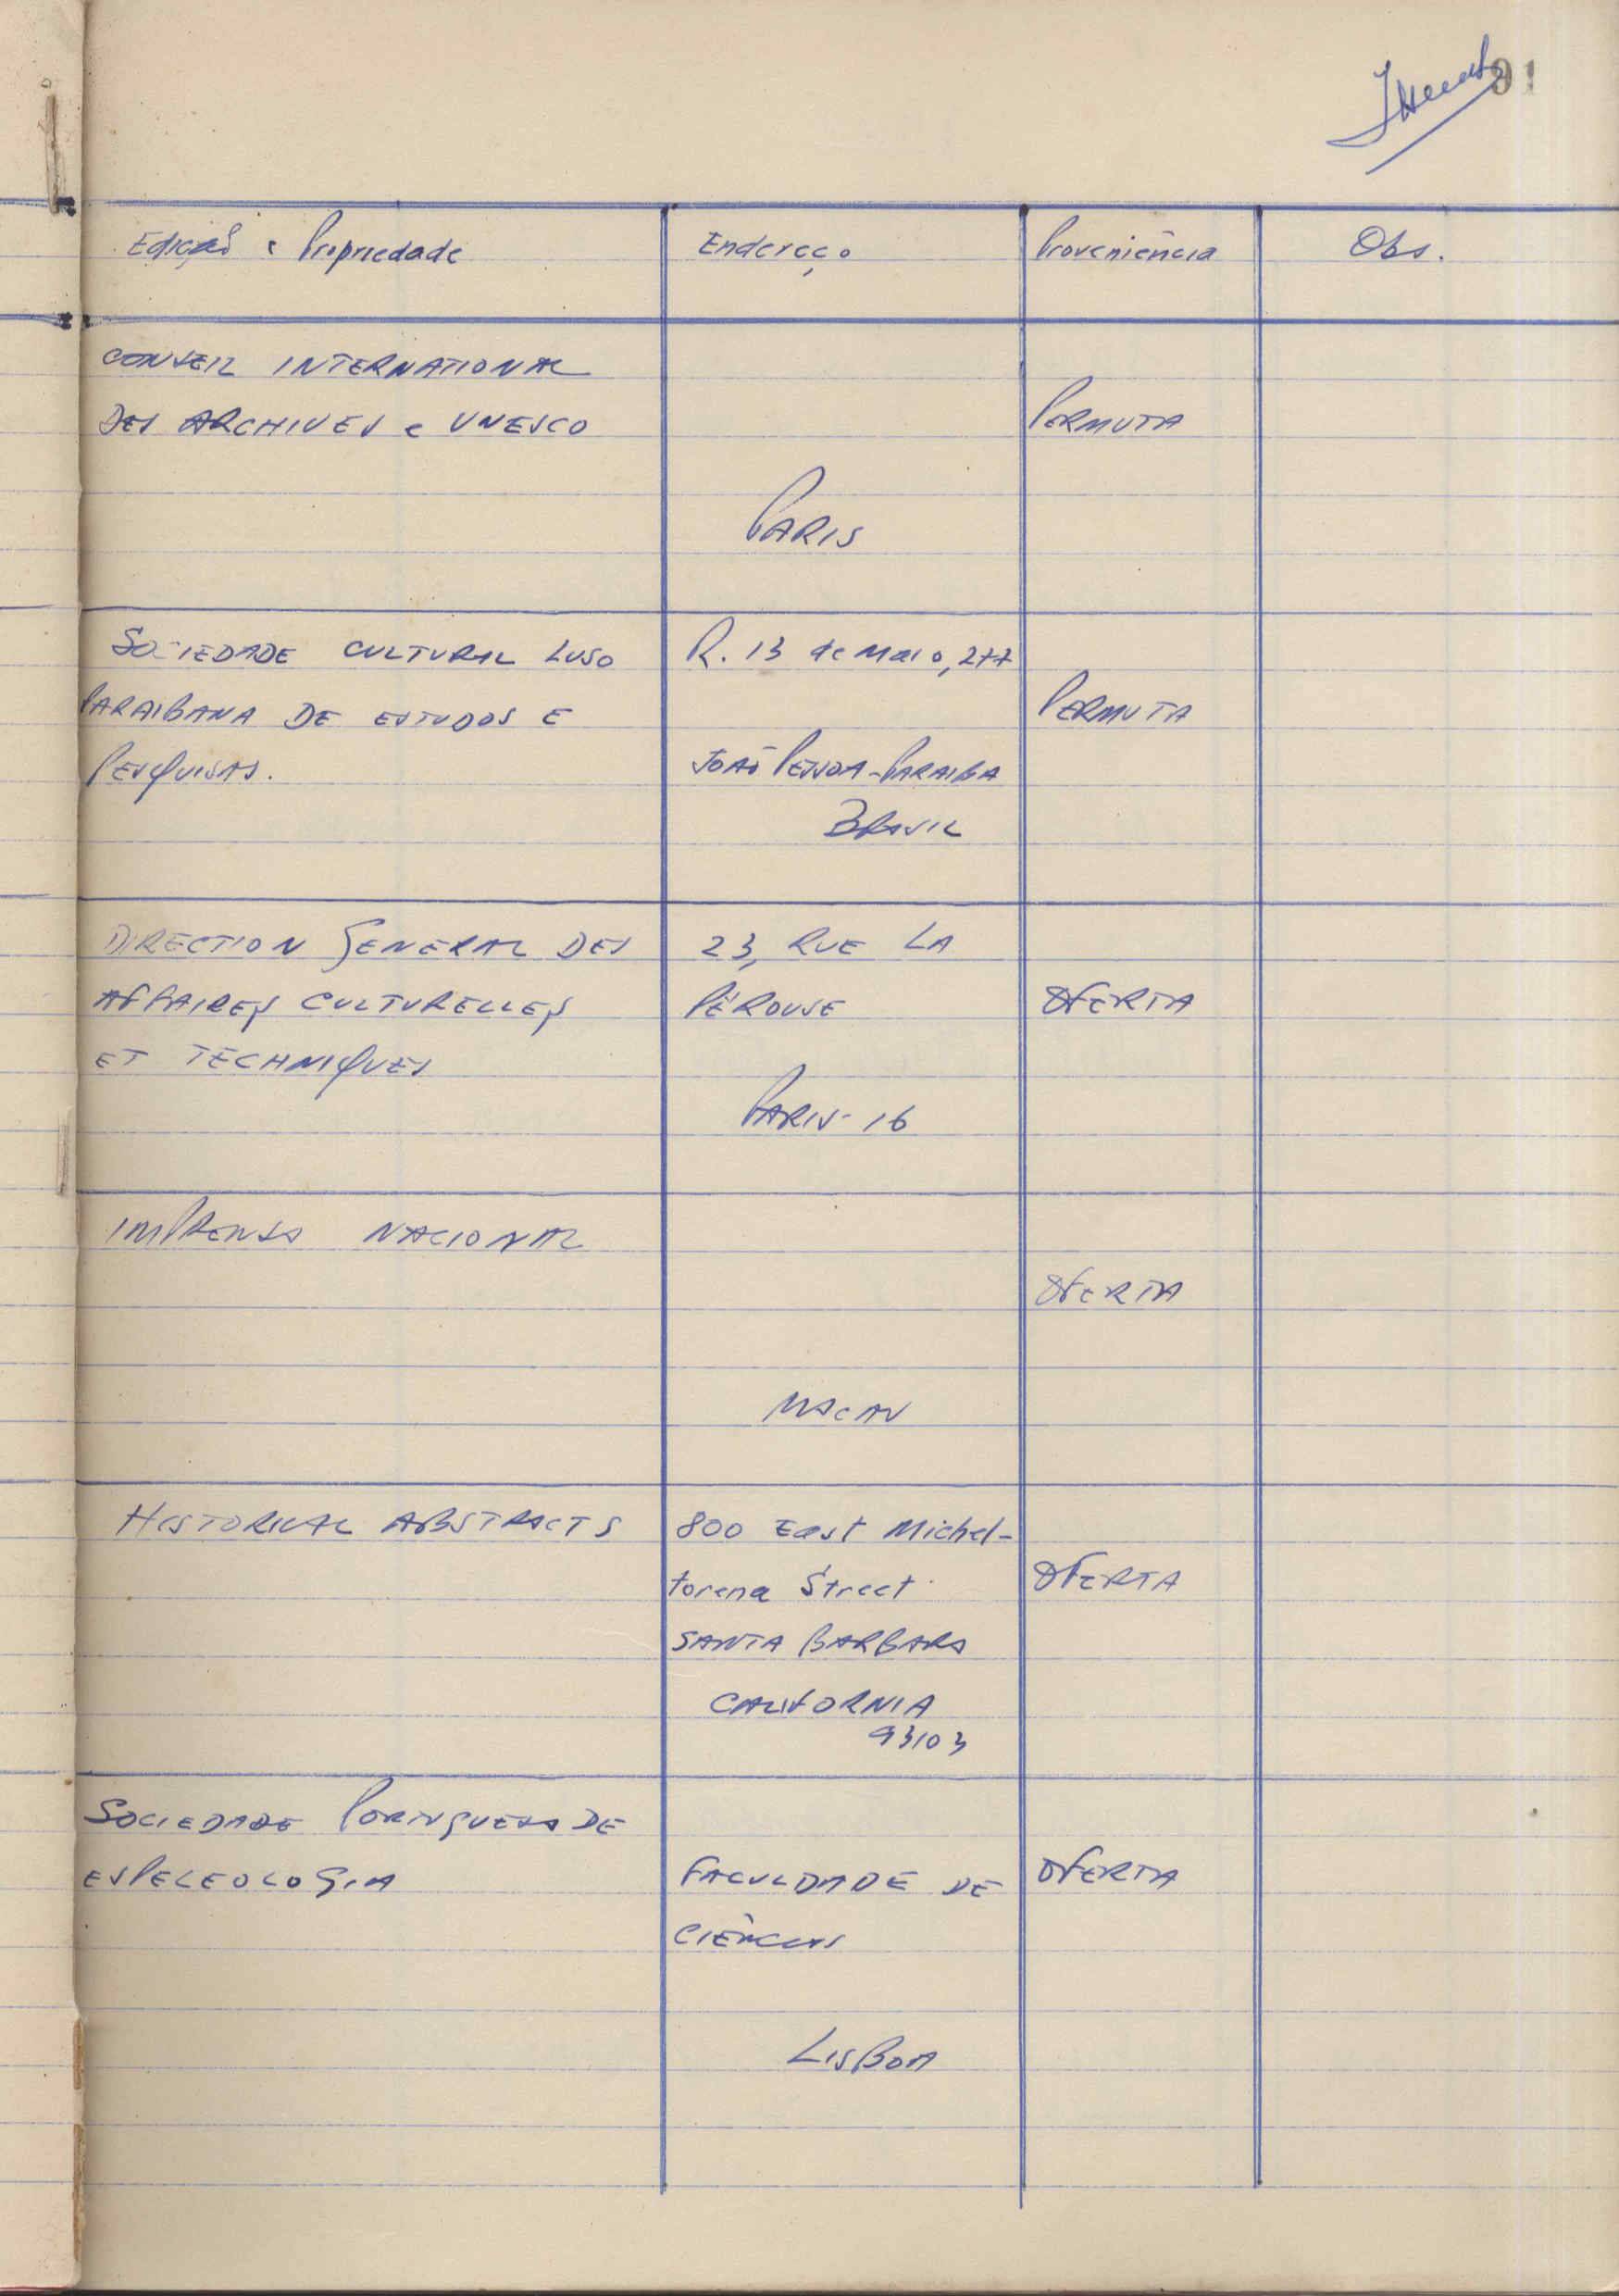 91
Edição e Propriedade Endereço Proveniência Obs.
CONSEIL INTERNATIONAL
DES ARCHIVES e UNESCO PERMUTA
PARIS
SOCIEDADE CULTURAL LUSO R. 13 de Maio, 277
PARAIBANA DE ESTUDOS E PERMUTA
PESQUISAS. JOÃO PESSOA - PARAIBA
BRASIL
DIRECTION GENERAL DES 23, RUE LA
AFFAIRES CULTURELLES PÉROUSE OFERTA
ET TECHNIQUES
PARIS - 16
IMPRENSA NACIONAL
OFERTA
MACAU
HISTORICAL ABSTRACTS 800 East Michel-
torena Street OFERTA
SANTA BARBARA
CALIFORNIA
93103
SOCIEDADE PORTUGUESA DE
ESPELEOLOGIA FACULDADE DE OFERTA
CIÊNCIAS
LISBOA